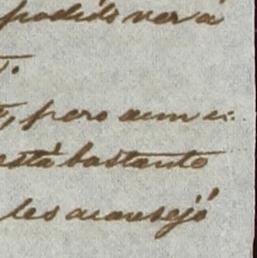 podido ver á
pero aun
está bastante
les aconsejó